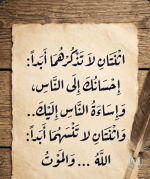 اثْنَتَانِ لَا تَذْكُرْهُمَا أَبَداً:
إِحْسَانُكَ إِلَى النَّاسِ،
وَإِسَاءَةُ النَّاسِ إِلَيْكَ..
وَاثْنَتَانِ لَا تَنْسَهُمَا أَبَداً:
اللهُ ... وَالْمَوْتُ